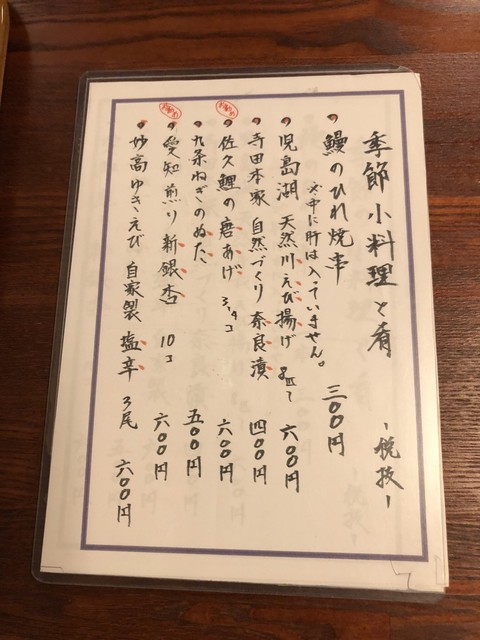 季節小料理と肴 -税抜-
鰻のひれ焼串 三〇〇円
※中に肝は入っていません。
児島湖 天然川えび揚げ 8匹〜 六〇〇円
寺田本家 自然づくり 奈良漬 四〇〇円
佐久鯉の唐あげ 3,4コ 六〇〇円
九条ねぎのぬた 五〇〇円
愛知煎り新銀杏 10コ 六〇〇円
妙高ゆきえび 自家製 塩辛 3尾 六〇〇円